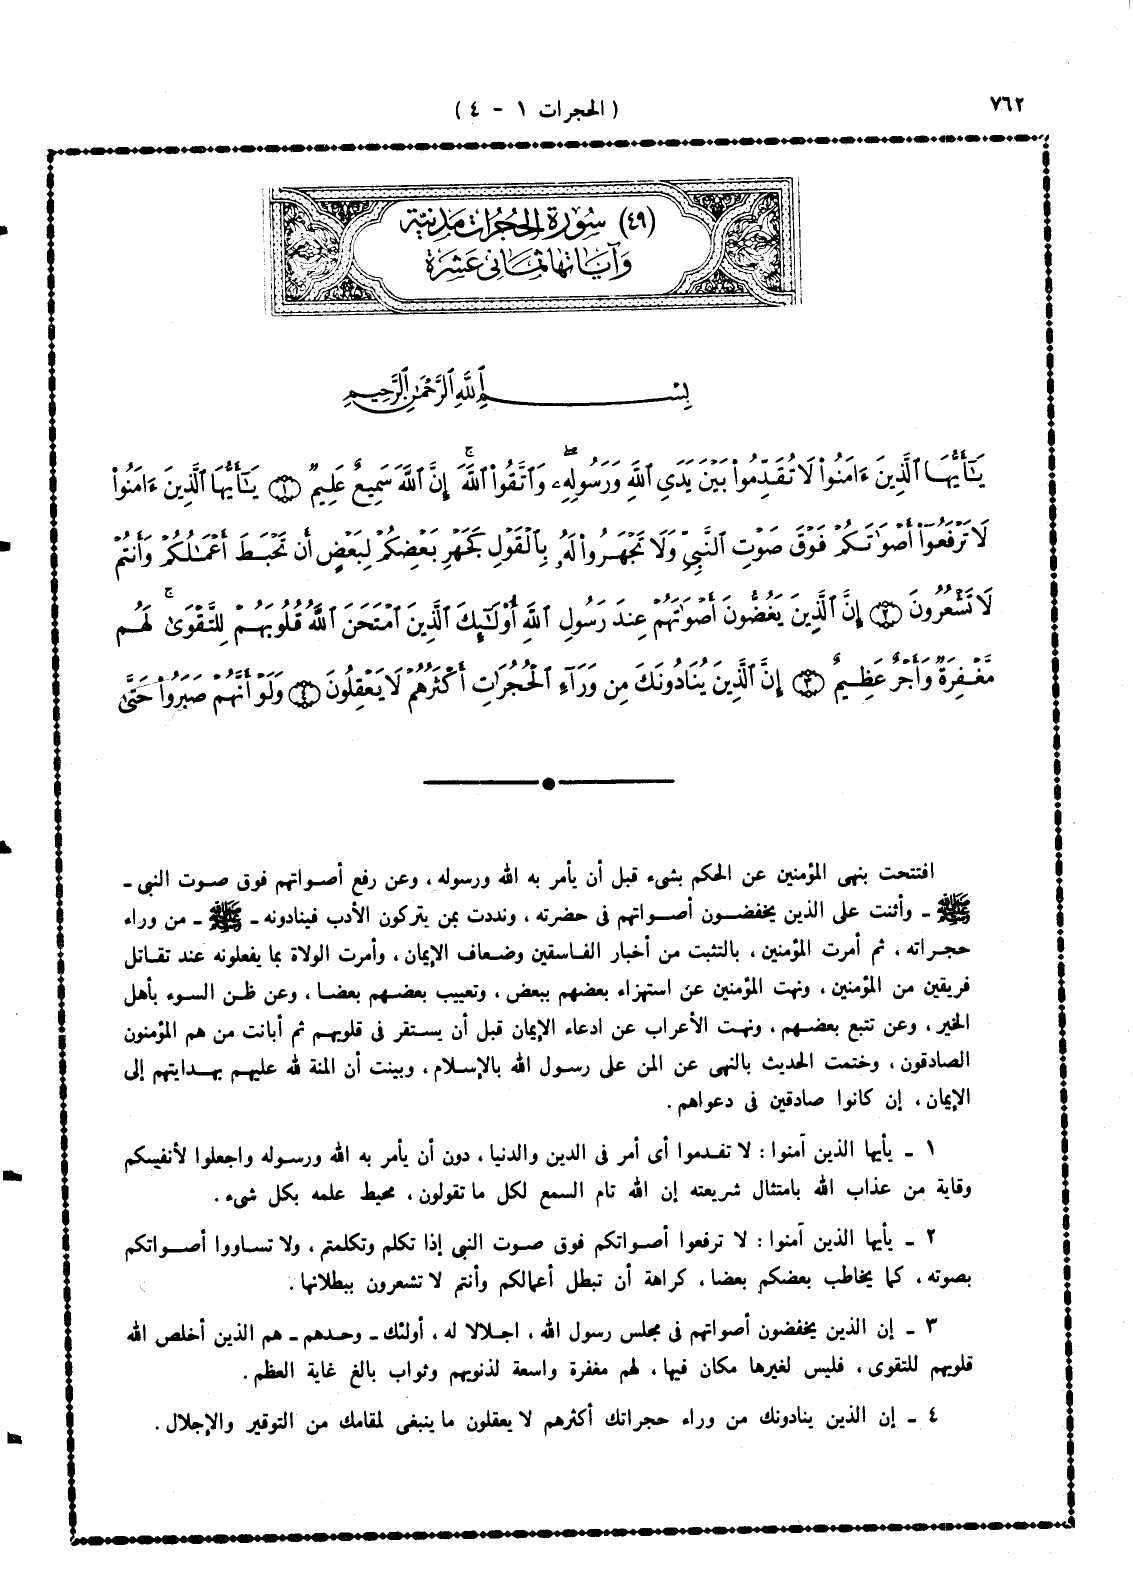 ٧٦٢
( الحجرات ١ - ٤ )
(٤٩) سُورَة الحُجُرات مَدنيَّة
وَآيَاتها ثمَانى عَشرَة
بِسْمِ ٱللَّهِ ٱلرَّحْمَٰنِ ٱلرَّحِيمِ
يَـٰٓأَيُّهَا ٱلَّذِينَ ءَامَنُوا۟ لَا تُقَدِّمُوا۟ بَيْنَ يَدَىِ ٱللَّهِ وَرَسُولِهِۦۖ وَٱتَّقُوا۟ ٱللَّهَۚ إِنَّ ٱللَّهَ سَمِيعٌ عَلِيمٌ ۝١ يَـٰٓأَيُّهَا ٱلَّذِينَ ءَامَنُوا۟
لَا تَرْفَعُوٓا۟ أَصْوَٰتَكُمْ فَوْقَ صَوْتِ ٱلنَّبِىِّ وَلَا تَجْهَرُوا۟ لَهُۥ بِٱلْقَوْلِ كَجَهْرِ بَعْضِكُمْ لِبَعْضٍ أَن تَحْبَطَ أَعْمَـٰلُكُمْ وَأَنتُمْ
لَا تَشْعُرُونَ ۝٢ إِنَّ ٱلَّذِينَ يَغُضُّونَ أَصْوَٰتَهُمْ عِندَ رَسُولِ ٱللَّهِ أُو۟لَـٰٓئِكَ ٱلَّذِينَ ٱمْتَحَنَ ٱللَّهُ قُلُوبَهُمْ لِلتَّقْوَىٰۚ لَهُم
مَّغْفِرَةٌ وَأَجْرٌ عَظِيمٌ ۝٣ إِنَّ ٱلَّذِينَ يُنَادُونَكَ مِن وَرَآءِ ٱلْحُجُرَٰتِ أَكْثَرُهُمْ لَا يَعْقِلُونَ ۝٤ وَلَوْ أَنَّهُمْ صَبَرُوا۟ حَتَّىٰ
افتتحت بنهى المؤمنين عن الحكم بشىء قبل أن يأمر به الله ورسوله ، وعن رفع أصواتهم فوق صوت النبى ـ
ﷺ ـ وأثنت على الذين يخفضون أصواتهم فى حضرته ، ونددت بمن يتركون الأدب فينادونه ـ ﷺ ـ من وراء
حجراته ، ثم أمرت المؤمنين ، بالتثبت من أخبار الفاسقين وضعاف الإيمان ، وأمرت الولاة بما يفعلونه عند تقاتل
فريقين من المؤمنين ، ونهت المؤمنين عن استهزاء بعضهم ببعض ، وتعييب بعضهم بعضا ، وعن ظن السوء بأهل
الخير ، وعن تتبع بعضهم ، ونهت الأعراب عن ادعاء الإيمان قبل أن يستقر فى قلوبهم ثم أبانت من هم المؤمنون
الصادقون ، وختمت الحديث بالنهى عن المن على رسول الله بالإسلام ، وبينت أن المنة لله عليهم بهدايتهم إلى
الإيمان ، إن كانوا صادقين فى دعواهم .
١ ـ يأيها الذين آمنوا : لا تقدموا أى أمر فى الدين والدنيا ، دون أن يأمر به الله ورسوله واجعلوا لأنفسكم
وقاية من عذاب الله بامتثال شريعته إن الله تام السمع لكل ما تقولون ، محيط علمه بكل شىء .
٢ ـ يأيها الذين آمنوا : لا ترفعوا أصواتكم فوق صوت النبى إذا تكلم وتكلمتم ، ولا تساووا أصواتكم
بصوته ، كما يخاطب بعضكم بعضا ، كراهة أن تبطل أعمالكم وأنتم لا تشعرون ببطلانها .
٣ ـ إن الذين يخفضون أصواتهم فى مجلس رسول الله ، اجلالا له ، أولئك ـ وحدهم ـ هم الذين أخلص الله
قلوبهم للتقوى ، فليس لغيرها مكان فيها ، لهم مغفرة واسعة لذنوبهم وثواب بالغ غاية العظم .
٤ ـ إن الذين ينادونك من وراء حجراتك أكثرهم لا يعقلون ما ينبغى لمقامك من التوقير والإجلال .